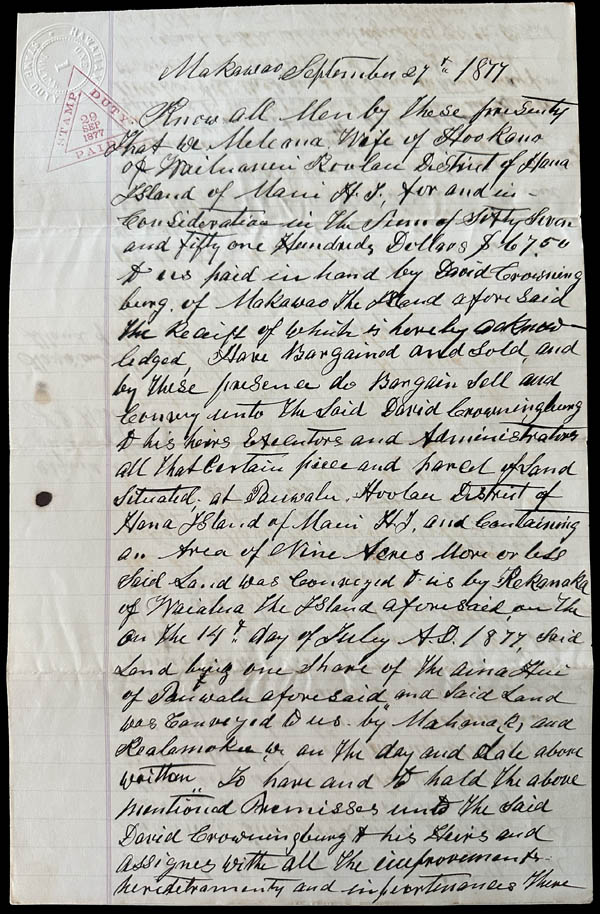 Makawao September 27th 1877
STAMP DUTY PAID
29
SEP
1877
Know all Men by these presents
That we Meleana Wife of Hookano
of Wailuanui Koolau District of Hana
Island of Maui H.I. for and in
Consideration in the Sum of Sixty Seven
and fifty one Hundreds Dollars $67.50
to us paid in hand by David Crowning
burg. of Makawao The Island aforesaid
the Receipt of which is hereby acknow-
ledged, Have Bargained and Sold, and
by These presence do Bargain Sell and
Convey unto The Said David Crowningburg
to his heirs Executors and Administrators
all that Certain piece and parcel of Land
Situated, at Pauwalu, Koolau District of
Hana Island of Maui H.I. and Containing
an Area of Nine Acres More or less
Said Land was Conveyed to us by Kekanaka
of Waialua The Island aforesaid, on The
on The 14th day of July A.D. 1877, Said
Land being one Share of The aina Hui
of Pauwalu aforesaid and Said Land
was Conveyed to us by "Mahana k, and
Kealamoku w, on The day and date above
written" To have and to hold The above
mentioned Premisses unto The Said
David Crowningburg & his Heirs and
assignes withe all The improvements
hereditraments and inpurtenances There